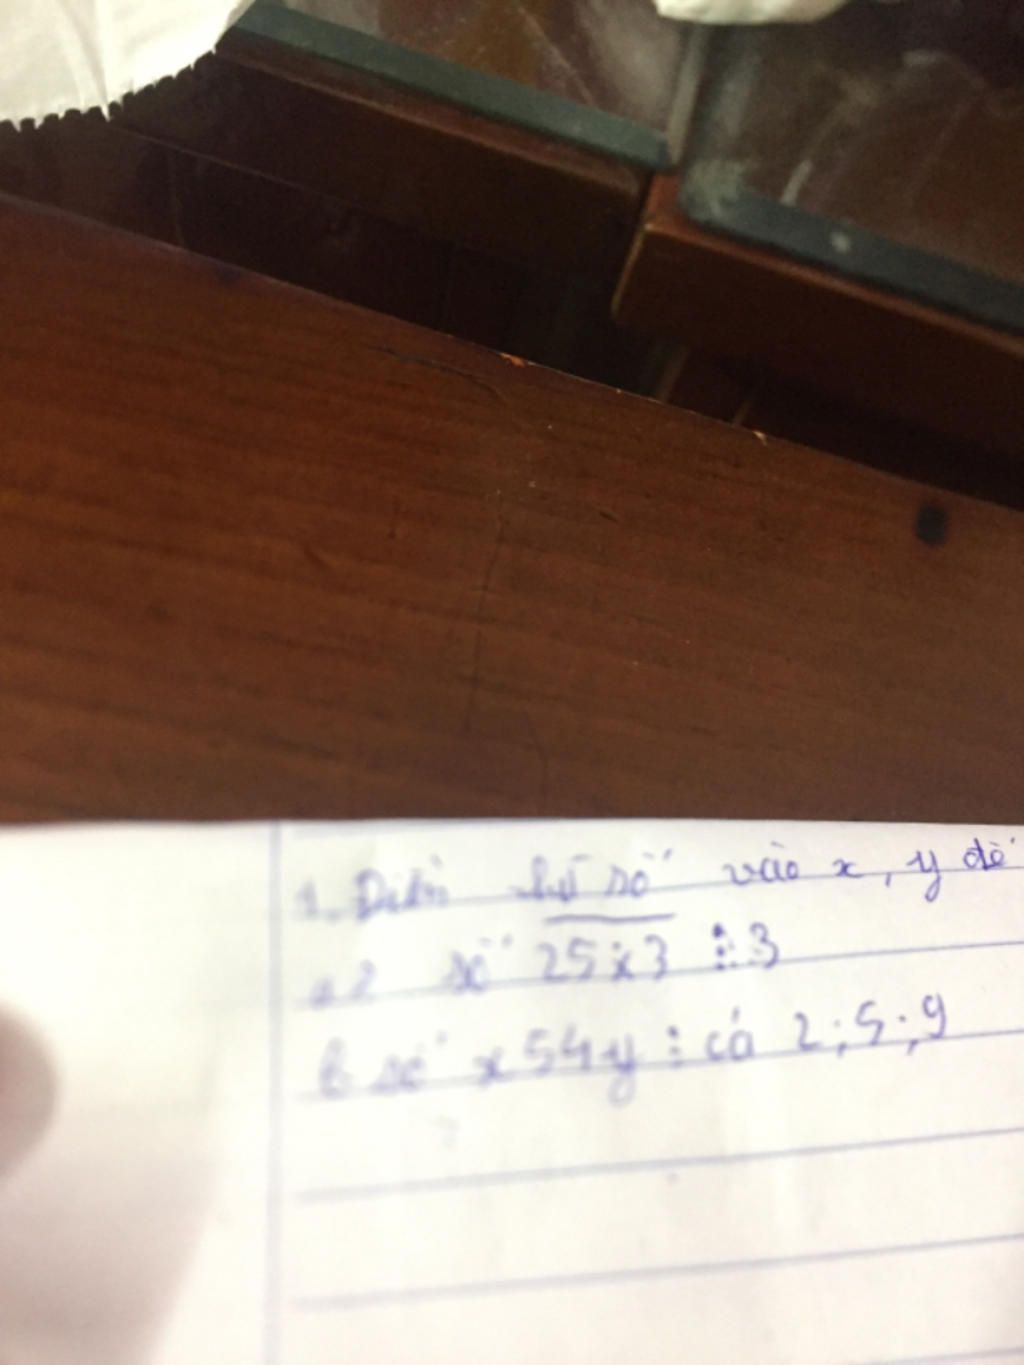 1. Điền chữ số vào x, y để
a, số 25x3 ⋮ 3
b số x54y ⋮ cả 2; 5; 9